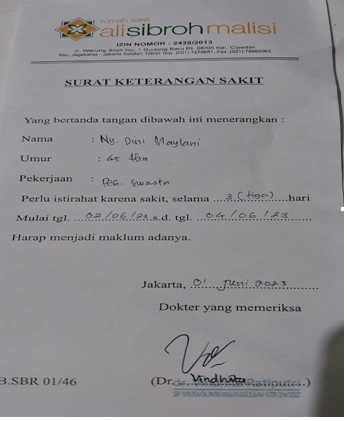 rumah sakit
alisibrohmalisi
IZIN NOMOR : 2438/2013
Jl. Warung Silah No. 1 Gudang Baru Rt. 08/05 Kel. Ciganjur
Kec. Jagakarsa - Jakarta Selatan 12630 Telp. (021)
SURAT KETERANGAN SAKIT
Yang bertanda tangan dibawah ini menerangkan :
Nama : Ny. Dini Maylani
Umur : 45 thn
Pekerjaan : Peg. Swasta
Perlu istirahat karena sakit, selama ...3 (tiga)...hari
Mulai tgl. ...02/06/23 s.d. tgl. ...04/06/23...
Harap menjadi maklum adanya.
Jakarta, 01 Juni 2023
Dokter yang memeriksa
B.SBR 01/46 (Dr. Vindhita Ratiputri..)